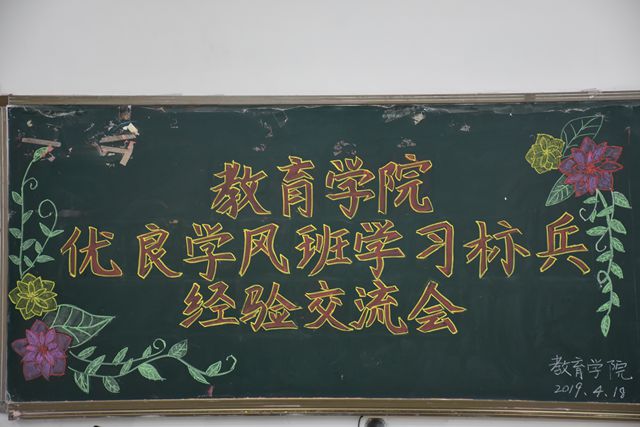 教育学院
优良学风班学习标兵
经验交流会
教育学院
2019.4.18